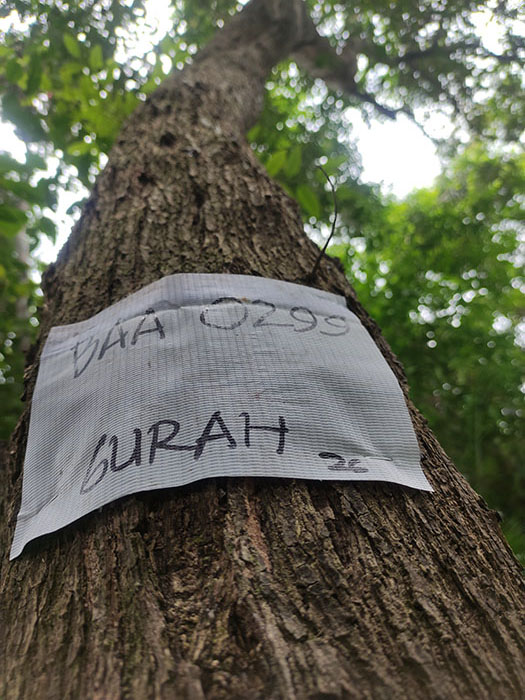 DAA 0299
GURAH